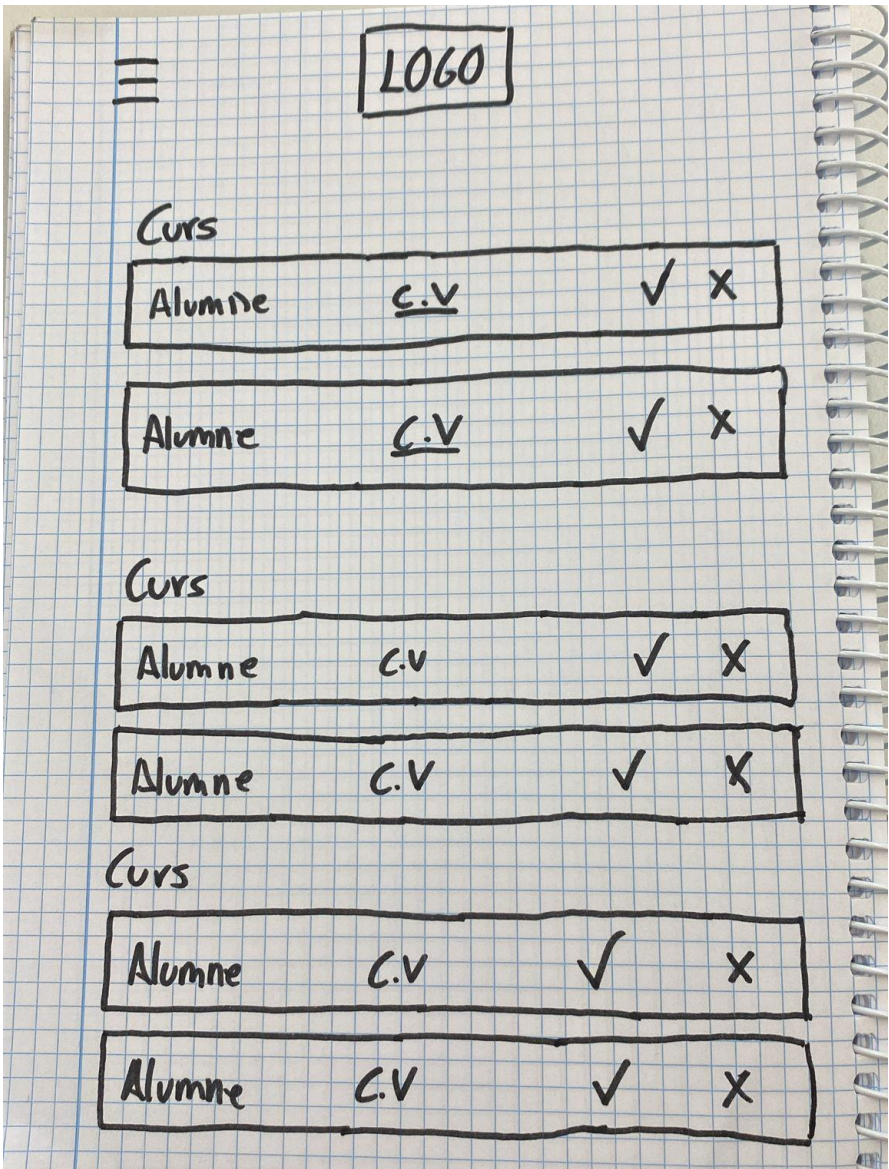 LOGO
Curs
Alumne C.V ✓ X
Alumne C.V ✓ X
Curs
Alumne C.V ✓ X
Alumne C.V ✓ X
Curs
Alumne C.V ✓ X
Alumne C.V ✓ X